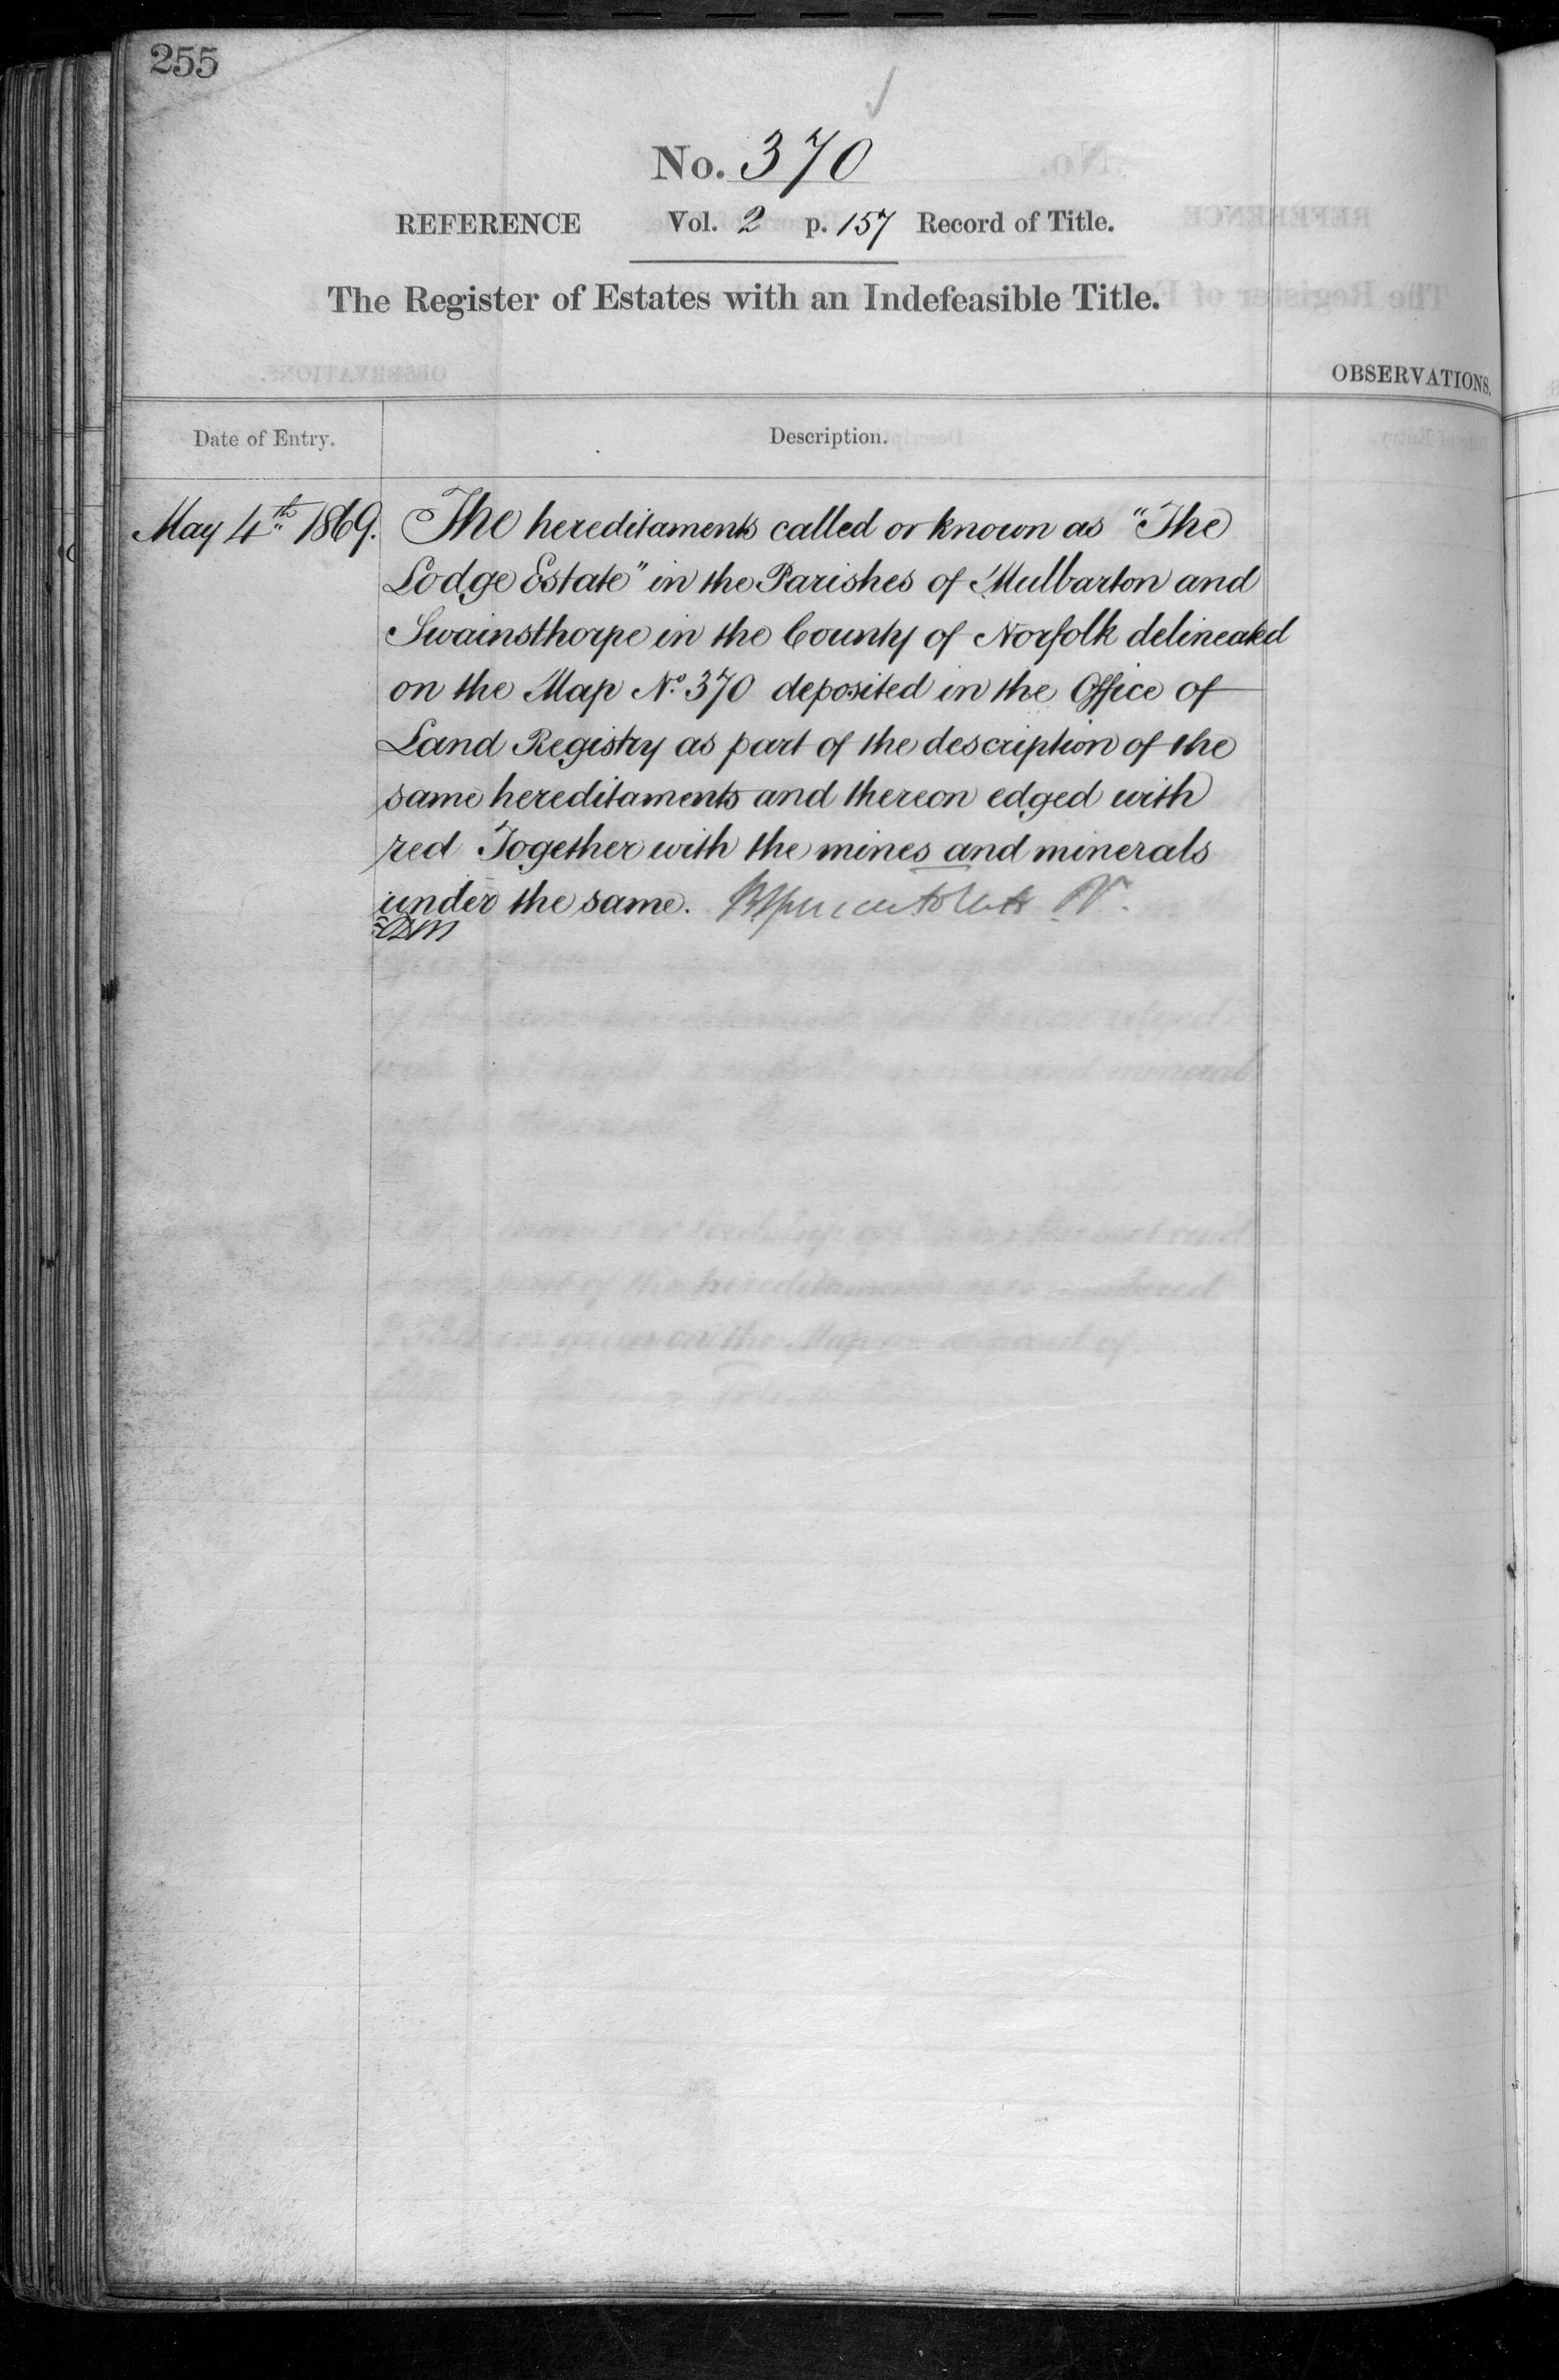 255
No. 370
REFERENCE Vol. 2 p. 157 Record of Title.
The Register of Estates with an Indefeasible Title.
OBSERVATIONS.
Date of Entry. Description.
May 4th 1869. The hereditaments called or known as "The
Lodge Estate" in the Parishes of Mulbarton and
Swainsthorpe in the County of Norfolk delineated
on the Map No. 370 deposited in the Office of
Land Registry as part of the description of the
same hereditaments and thereon edged with
red Together with the mines and minerals
under the same.